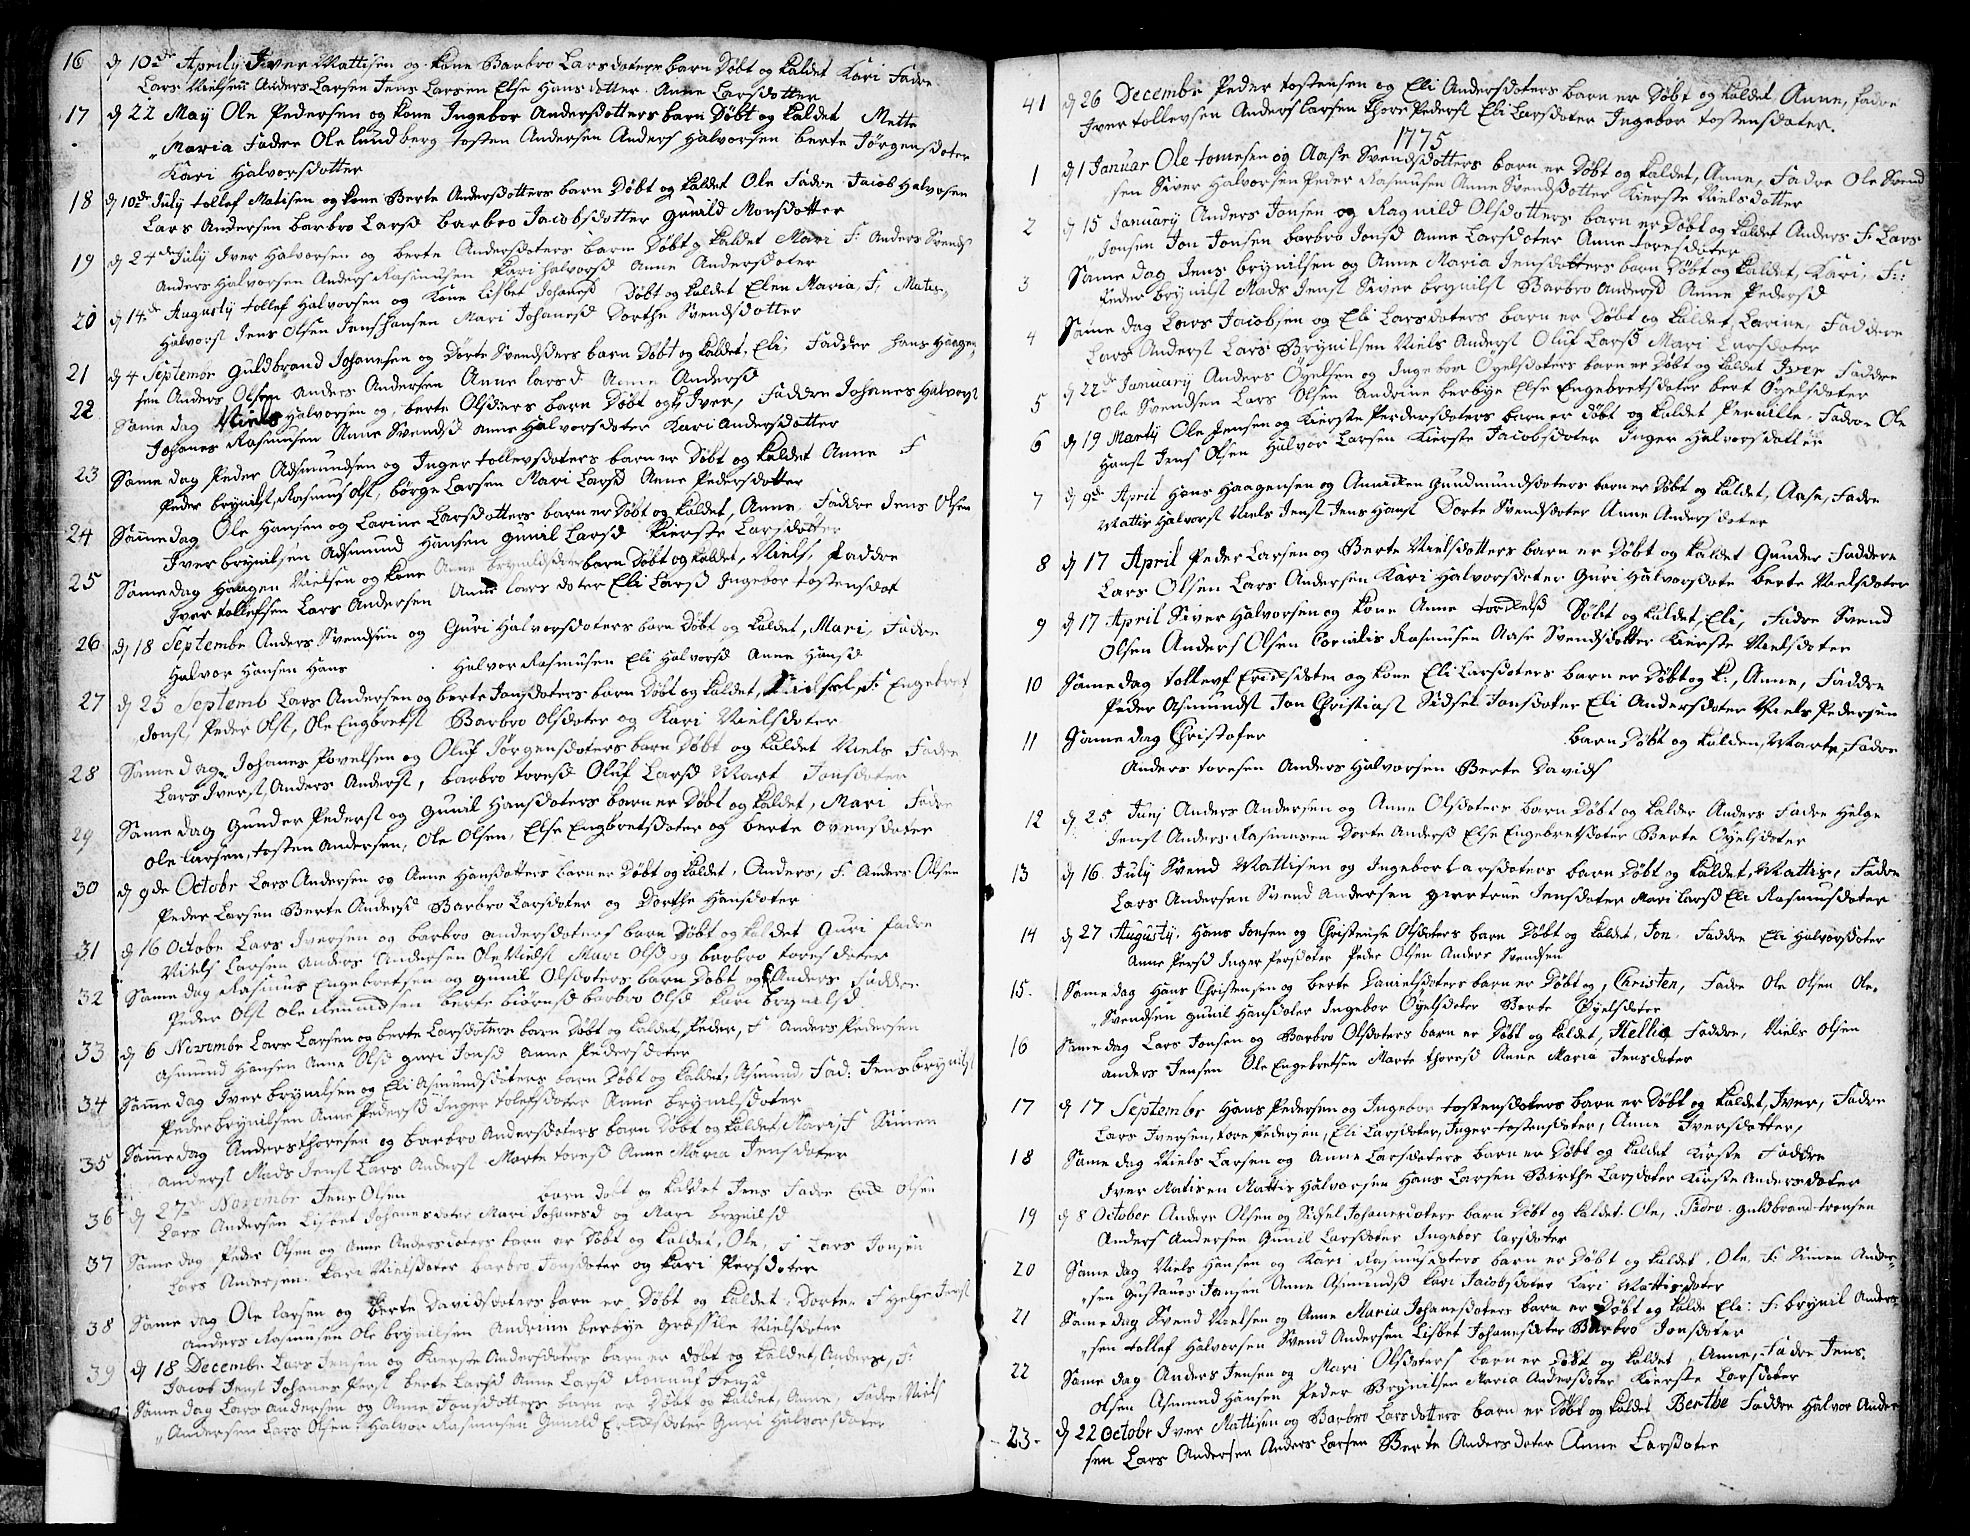 16 d 10de Aprily Iver Mattisen og kone Barbro Larsdoters barn Døbt og kaldet Kari Fadre
Lars Nielsen Anders Larsen Jens Larsen Else Hansdotter Anne Larsdotter
17 d 22 May Ole Pedersen og kone Ingebor Andersdotters barn Døbt og kaldet Mette
Maria Fadre Ole Lundberg tosten Andersen Anders Halvorsen berte Jørgensdoter
Kari Halvorsdotter
18 d 10de July tollef Matisen og kone Berte Andersdotters barn Døbt og kaldet Ole Fadre Jacob Halvorsen
Lars Andersen barbro Larsd barbro Jacobsdotter Gunild Monsdotter
19 d 24de July Iver Halvorsen og berte Andersdoters barn Døbt og kaldet Mari F: Anders Svends
Anders Halvorsen Anders Rasmusen Kari Halvorsd Anne Andersdoter
20 d 14de Augusty tollef Halvorsen og Kone Lisbet Johanesd Døbt og kaldet Elen Maria, F. Matis
Halvorst Jens Olsen Jens Hansen Mari Johanesd Dorthe Svendsdotter
21 d 4 September Guldbrand Johanesen og Dorte Svendsders barn Døbt og kaldet, Eli, Fadder Hans Haagen
sen Anders Olsen Anders Andersen Anne larsd Anne Andersd
22 Same dag Niels Halvorsen og berte Olsders barn Døbt og k Iver, Faddre Johanes Halvorst
Johanes Rasmusen Anne Svendsd Anne Halvorsdoter Kari Andersdotter
23 Same dag Peder Asmundsen og Inger tollevsdoters barn er Døbt og kaldet Anne F
Peder brynilst, Rasmus Olst, børge Larsen Mari Larsd Anne Pedersdotter
24 Samedag Ole Hansen og Larine Larsdotters barn er Døbt og kaldet, Anne, Faddre Jens Olsen
Iver brynilsen Asmund Hansen gunil Larsd Kierste Larsdotter
25 Samedag Haagen Nielsen og kone Anne brynildsdoter barn Døbt og kaldet, Niels, faddre
Iver tollefsen Lars Andersen Anne larsdoter Eli Larsd Ingebor tostensdot
26 d 18 Septembe Anders Svendsen og Guri Halvorsdoters barn Døbt og kaldet, Mari, Fadre
Halvor Hansen Hans Halvor Rasmusen Eli Halvorsd Anne Hansd
27 d 25 Septemb Lars Andersen og berte Jonsdoters barn Døbt og kaldet, Sidsel, F. Engebret
Jonst, Peder Olst, Ole Engbretst Barbro Olsdoter og Kari Nielsdoter
28 Same dag Johanes Povelsen og Oluf Jørgensdoters barn Døbt og kaldet Niels Fadre
Lars Iverst Anders Anderst, barbro toresd Oluf Larsd Mart Jonsdoter
29 Same dag Gunder Pederst og Gunil Hansdoters barn er Døbt og kaldet, Mari Fadre
Ole larsen, tosten Andersen, Ole Olsen, Else Engbretsdoter og berte Ovensdoter
30 d 9de Octobr Lars Andersen og Anne Hansdotters barn er Døbt og kaldet, Anders, F. Anders Olsen
Peder Larsen Berte Andersd Barbro Larsdoter og Dorthe Hansdoter
31 d 16 Octobe Lars Iversen og barbro Andersdoters barn Døbt og kaldet Guri fadre
Niels Larsen Anders Andersen Ole Nielst Mari Olsd og barbro toresdoter
32 Same dag Rasmus Engebretsen og gunil Olsdoters barn Døbt og k Anders Faddre
Peder Olst Ole Amundsen berte biørnsd barbro Olsd Kari brynilsd
33 d 6 Novembe Lars Larsen og berte Larsdoters barn Døbt og kaldet, Peder, F Anders Pedersen
Asmund Hansen Anne Olsd guri Jonsd Anne Pedersdoter
34 Samme dag Iver brynilsen og Eli Asmundsdoters barn Døbt og kaldet, Asmund, Fad: Jens brynilst
Peder brynilsen Anne Pedersd Inger tolefsdoter Anne brynilsdoter
35 Samme dag Anders thoresen og barbro Andersdoters barn Døbt og kaldet Mari F Simen
Anderst Mads Jenst Lars Anderst Marte toresd Anne Maria Jensdoter
36 d 27de Novembr Jens Olsen barn døbt og kaldet Jens Fadre Olsen
Lars Andersen Lisbet Johanesdoter Mari Johanesd og Mari brynilsd
37 Same dag Peder Olsen og Anne Andersdoters barn er Døbt og kaldet, Ole, F Lars Jonsen
Lars Andersen. Kari Nielsdoter barbro Jonsdoter og Kari Persdoter
38 Same dag Ole larsen og berte Davidsdoters barn er Døbt og kaldet, Dorte F Helge Jenst
Anders Rasmusen Ole brynilsen Andrine berbye Nielsdoter
39 d 18 Decembe Lars Jensen og Kierste Andersdoters barn er døbt og kaldet Anders, F
Jacob Jenst Johanes Perst berte Larsd Anne Larsd Jensd
Same dag Lars andersen og Anne Jonsdotters barn er Døbt og kaldet, Anne, Fadre Niels
Andersen Lars Olsen Halvor Rasmusen Gunild Guri Halvorsdoter
41 d 26 Decembe Peder tostensen og Eli Andersdoters barn er Døbt og kaldet Anne, fadre
Iver tollevsen Anders Larsen thore Pederst Eli Larsdoter Ingebor tostensdoter.
1775
1 d 1 Januar Ole tomesen og Aase Svendsdotters barn er Døbt og kaldet, Anne, Fadre Ole Svend
sen Siver Halvorsen Peder Rasmusen Anne Svendsdotter Kierste Nielsdotter
2 d 15 January Anders Jonsen og Ragnild Olsdotters barn er Døbt og kaldet Anders F. Lars
Jonsen Jon Jonsen barbro Jonsd Anne Larsdoter Anne toresdoter
3 Same dag Jens brynilsen og Anne Maria Jensdotters barn Døbt og kaldet, Kari, F:
Peder Brynilst Mads Jenst Siver brynilst Barbro Andersd Anne Pedersd
4 Same dag Lars Jacobsen og Eli Larsdoters barn er Døbt og kaldet, Larine, Faddere
Lars Anderst Lars Brynilsen Niels Anderst Oluf Larsd Mari Larsdoter
5 d 22de January Anders Øyelsen og Ingebor Øyelsdoters barn er Døbt og kaldet Iver Faddre
Ole Svendsen Lars Olsen Andrine berbye Else Engebretsdoter bert Øyelsdoter
6 d 19 Marty Ole Jensen og Kierste Perdersdoters barn er døbt og kaldet Pernille, Fadre Ole
Hanst Jens Olsen Halvor Larsen Kierste Jacobsdoter Inger Halvorsdotter
7 d 9de April Hans Haagensen og Anniken Gundmundsdoters barn er Døbt og kaldet, Aase, Fadre
Mattis Halvorst Niels Jenst Jens Hanst Dorte Svendsdoter Anne Andersdoter
8 d 17 April Peder Larsen og Berte Nielsdotters barn er Døbt og kaldet Gunder Faddere
Lars Olsen Lars Andersen Kari Halvorsdoter Guri Halvorsdote berte Nielsdoter
9 d 17 April Siver Halvorsen og kone Anne torkelsd Døbt og kaldet, Eli, Fadre Svend
Olsen Anders Olsen Cornelis Rasmusen Aase Svendsdotter Kierste Nielsdoter
10 Samedag tollevf og kone Eli Larsdoters barn er Døbt og k:, Anne, Faddre
Peder Asmundst Jon Christiast Sidsel Jonsdoter Eli Andersdoter Niels Pedersen
11 Samedag Christofer barn Døbt og kalden, Marte, Fadre
Anders toresen Anders Halvorsen Berte Davids
12 d 25 Junj Anders Andersen og Anne Olsdoters barn Døbt og kaldet Anders Fadre Helge
Jenst Anders Rasmusen Dorte Andersd Else Engebretsdoter Berte Øyelsdoter
13 d 16 July Svend Mattisen og Ingebor Larsdoters barn Døbt og kaldet, Mattis, Fadre
Lars Andersen Svend Andersen giertrue Jensdoter Mari Larsd Eli Rasmusdoter
14 d 27 Augusty. Hans Jonsen og Christense Olsdoters barn Døbt og kaldet, Jon, Faddre Eli Halvorsdoter
Anne Persd Inger Persdoter Peder Olsen Anders Svendsen
15. Same dag Hans Christensen og berte Danielsdoters barn er Døbt og, Christen, Fadre Ole Olsen Ole
Svendsen gunil Hansdoter Ingebor Øyelsdoter Berte Øyelsdoter
16 Same dag Lars Jonsen og Barbro Olsdoters barn er Døbt og kaldet, Hellia Faddre, Niels Olsen
Anders Jensen Ole Engebretsen Marte thoresd Anne Maria Jensdoter
17 d 17 Septembr Hans Pedersen og Ingebor tostensdoters barn er Døbt og kaldet, Iver, Fadre
Lars Iversen, tore Pedersen, Eli Larsdoter, Inger tostensdoter, Anne Iversdotter,
18 Same dag Niels Larsen og Anne Larsdoters barn er Døbt og kaldet Kirste Faddre
Iver Matisen Mattis Halvorsen Hans Larsen Birthe Larsdoter Kirste Andersdoter
19 d 8 October Anders Olsen og Sidsel Johanesdoters barn Døbt og kaldet. Ole, Fadre. guldbrand tronsen
Anders Andersen Gunil Larsdoter Ingebor larsdoter
20 Same dag Niels Hansen og Kari Rasmusdoters barn er Døbt og kaldet, Ole, F: Simen Ander
sen Gustaves Jansen Anne Asmundsd Kari Jacobsdoter Kari Mattisdoter
21 Same dag Svend Nielsen og Anne Maria Johanesdoters barn er Døbt og kalde Eli: F: brynil Anders
sen tollef Halvorsen Svend Andersen Lisbet Johanesdoter Barbro Jonsdoter
22 Same dag Anders Jensen og Mari Olsdoters barn er Døbt og kaldet, Anne, Fadre Jens
Olsen Asmund Hansen Peder Brynilsen Maria Andersdoter Kierste Larsdoter
23. d 22 Octobr Iver Mattisen og Barbro Larsdotters barn er Døbt og kaldet Berthe Faddre Halvor Ander
sen Lars Andersen Anders Larsen Berte Andersdoter Anne Larsdoter